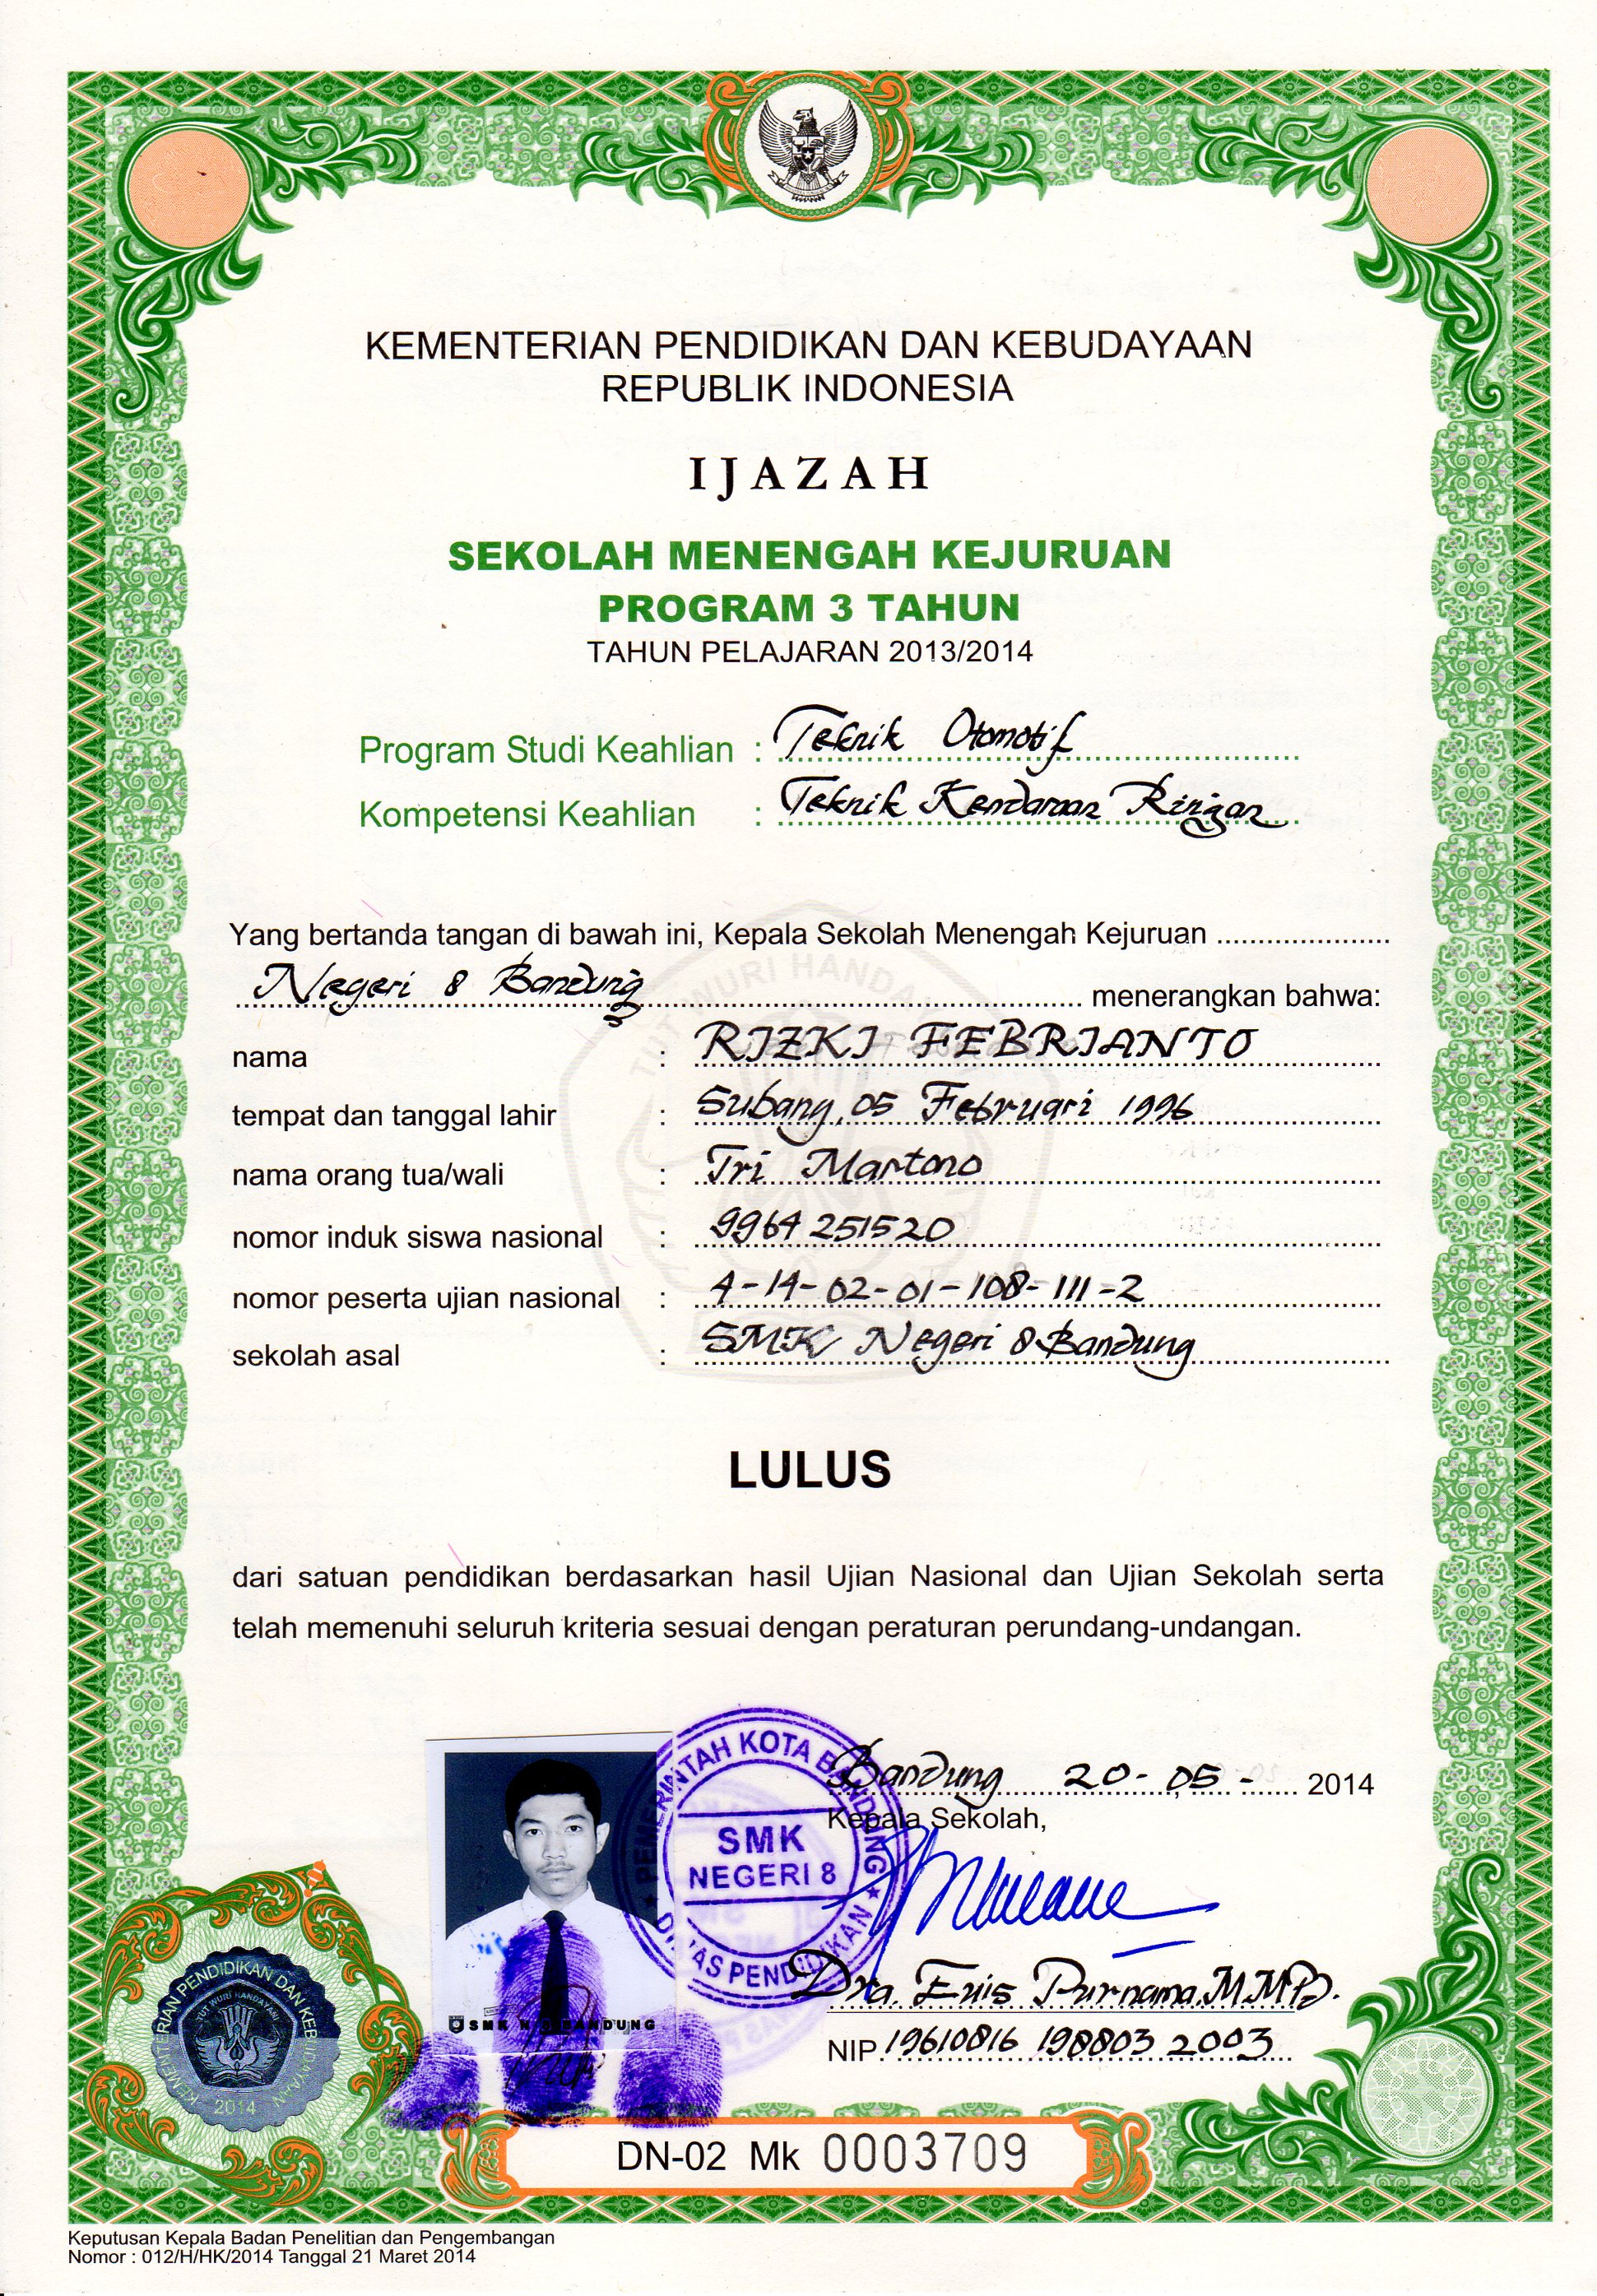 KEMENTERIAN PENDIDIKAN DAN KEBUDAYAAN
REPUBLIK INDONESIA
IJAZAH
SEKOLAH MENENGAH KEJURUAN
PROGRAM 3 TAHUN
TAHUN PELAJARAN 2013/2014
Program Studi Keahlian : Teknik Otomotif
Kompetensi Keahlian : Teknik Kendaraan Ringan
Yang bertanda tangan di bawah ini, Kepala Sekolah Menengah Kejuruan
Negeri 8 Bandung menerangkan bahwa:
nama : RIZKI FEBRIANTO
tempat dan tanggal lahir : Subang, 05 Februari 1996
nama orang tua/wali : Tri Martono
nomor induk siswa nasional : 9964251520
nomor peserta ujian nasional : 4-14-02-01-108-111-2
sekolah asal : SMK Negeri 8 Bandung
TUT WURI HANDAYANI
LULUS
dari satuan pendidikan berdasarkan hasil Ujian Nasional dan Ujian Sekolah serta
telah memenuhi seluruh kriteria sesuai dengan peraturan perundang-undangan.
Bandung, 20-05-2014
Kepala Sekolah,
PEMERINTAH KOTA BANDUNG
SMK
NEGERI 8
DINAS PENDIDIKAN
Dra. Euis Purnama, M.MPd.
NIP. 19610816 198803 2003
SMK N 8 BANDUNG
KEMENTERIAN PENDIDIKAN DAN KEBUDAYAAN
TUT WURI HANDAYANI
2014
DN-02 Mk 0003709
Keputusan Kepala Badan Penelitian dan Pengembangan
Nomor : 012/H/HK/2014 Tanggal 21 Maret 2014